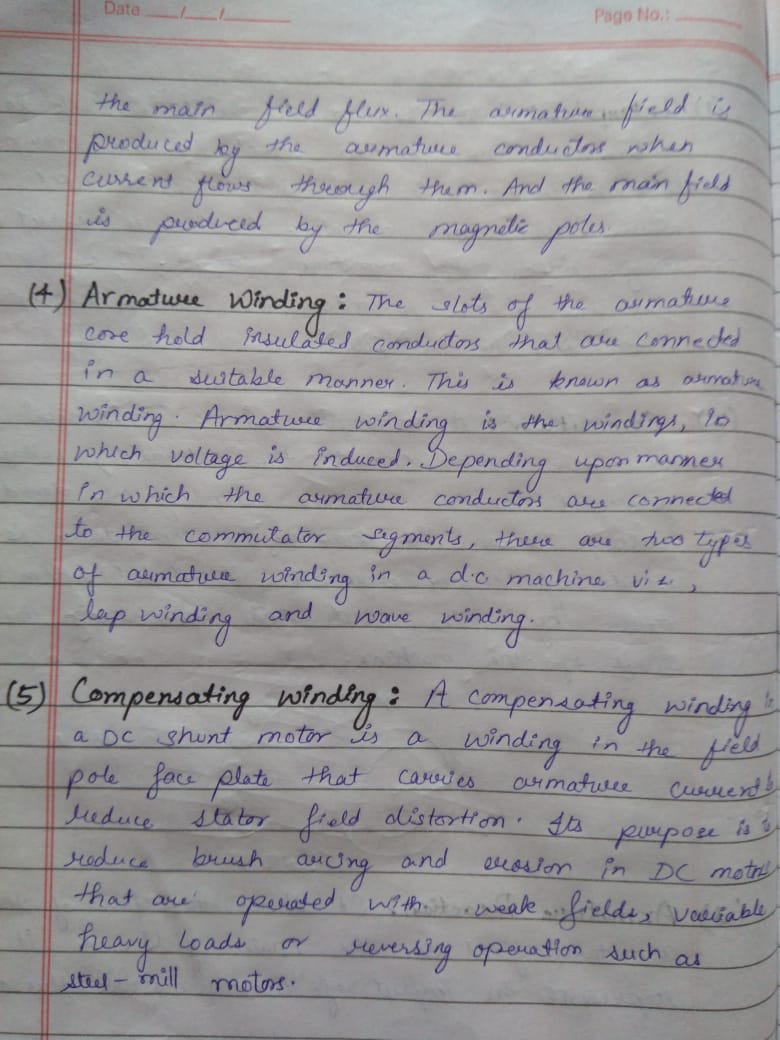 Date / /
Page No.:
the main field flux. The armature field is
produced by the armature conductors when
current flows through them. And the main field
is produced by the magnetic poles.
(4) Armature Winding: The slots of the armature
core hold insulated conductors that are connected
in a suitable manner. This is known as armature
winding. Armature winding is the windings, in
which voltage is induced. Depending upon manner
in which the armature conductors are connected
to the commutator segments, there are two types
of armature winding in a d.c machine viz,
lap winding and wave winding.
(5) Compensating winding: A compensating winding in
a DC shunt motor is a winding in the field
pole face plate that carries armature current
reduce stator field distortion. Its purpose is to
reduce brush arcing and erosion in DC motors
that are operated with weak fields, variable
heavy loads or reversing operation such as
steel-mill motors.